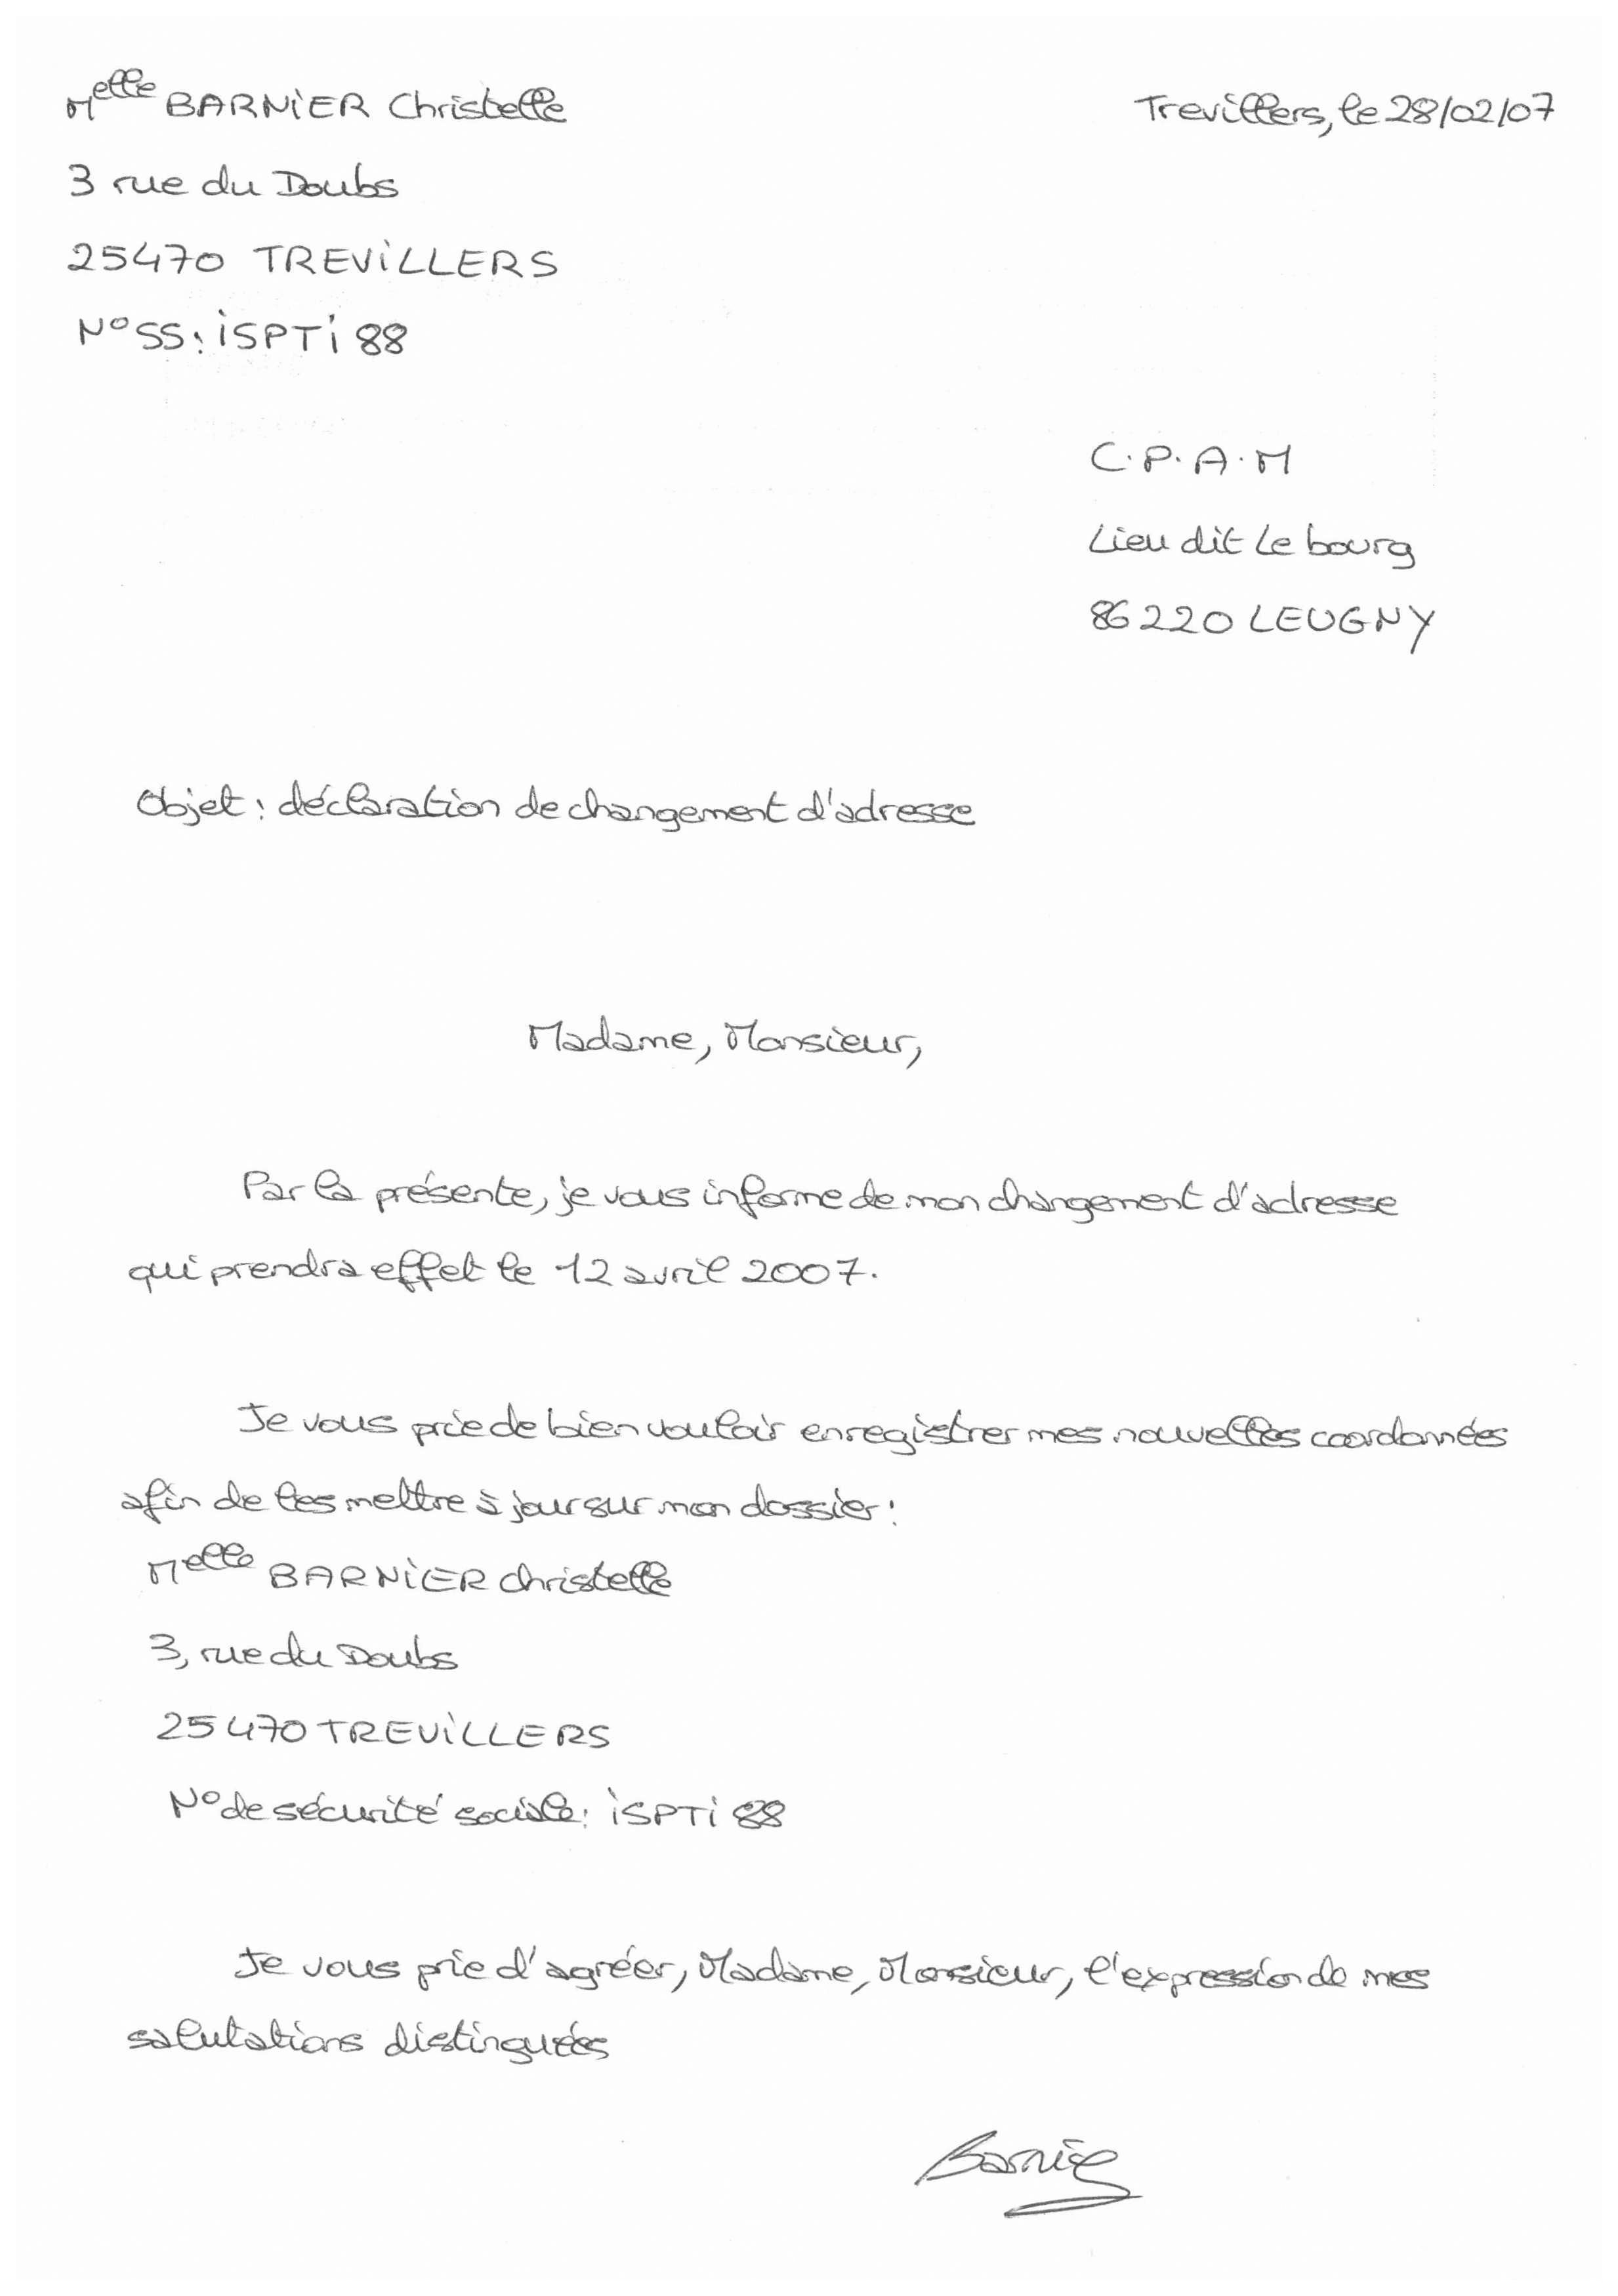 Melle BARNIER Christelle
Trevillers, le 28/02/07
3 rue du Doubs
25470 TREVILLERS
N° SS: ISPTI 88
C.P.A.M
Lieu dit Le bourg
86220 LEUGNY
Objet : déclaration de changement d'adresse
Madame, Monsieur,
Par la présente, je vous informe de mon changement d'adresse
qui prendra effet le 12 avril 2007.
Je vous prie de bien vouloir enregistrer mes nouvelles coordonnées
afin de les mettre à jour sur mon dossier :
Melle BARNIER Christelle
3, rue du Doubs
25470 TREVILLERS
N° de sécurité sociale : ISPTI 88
Je vous prie d'agréer, Madame, Monsieur, l'expression de mes
salutations distinguées
Barnier